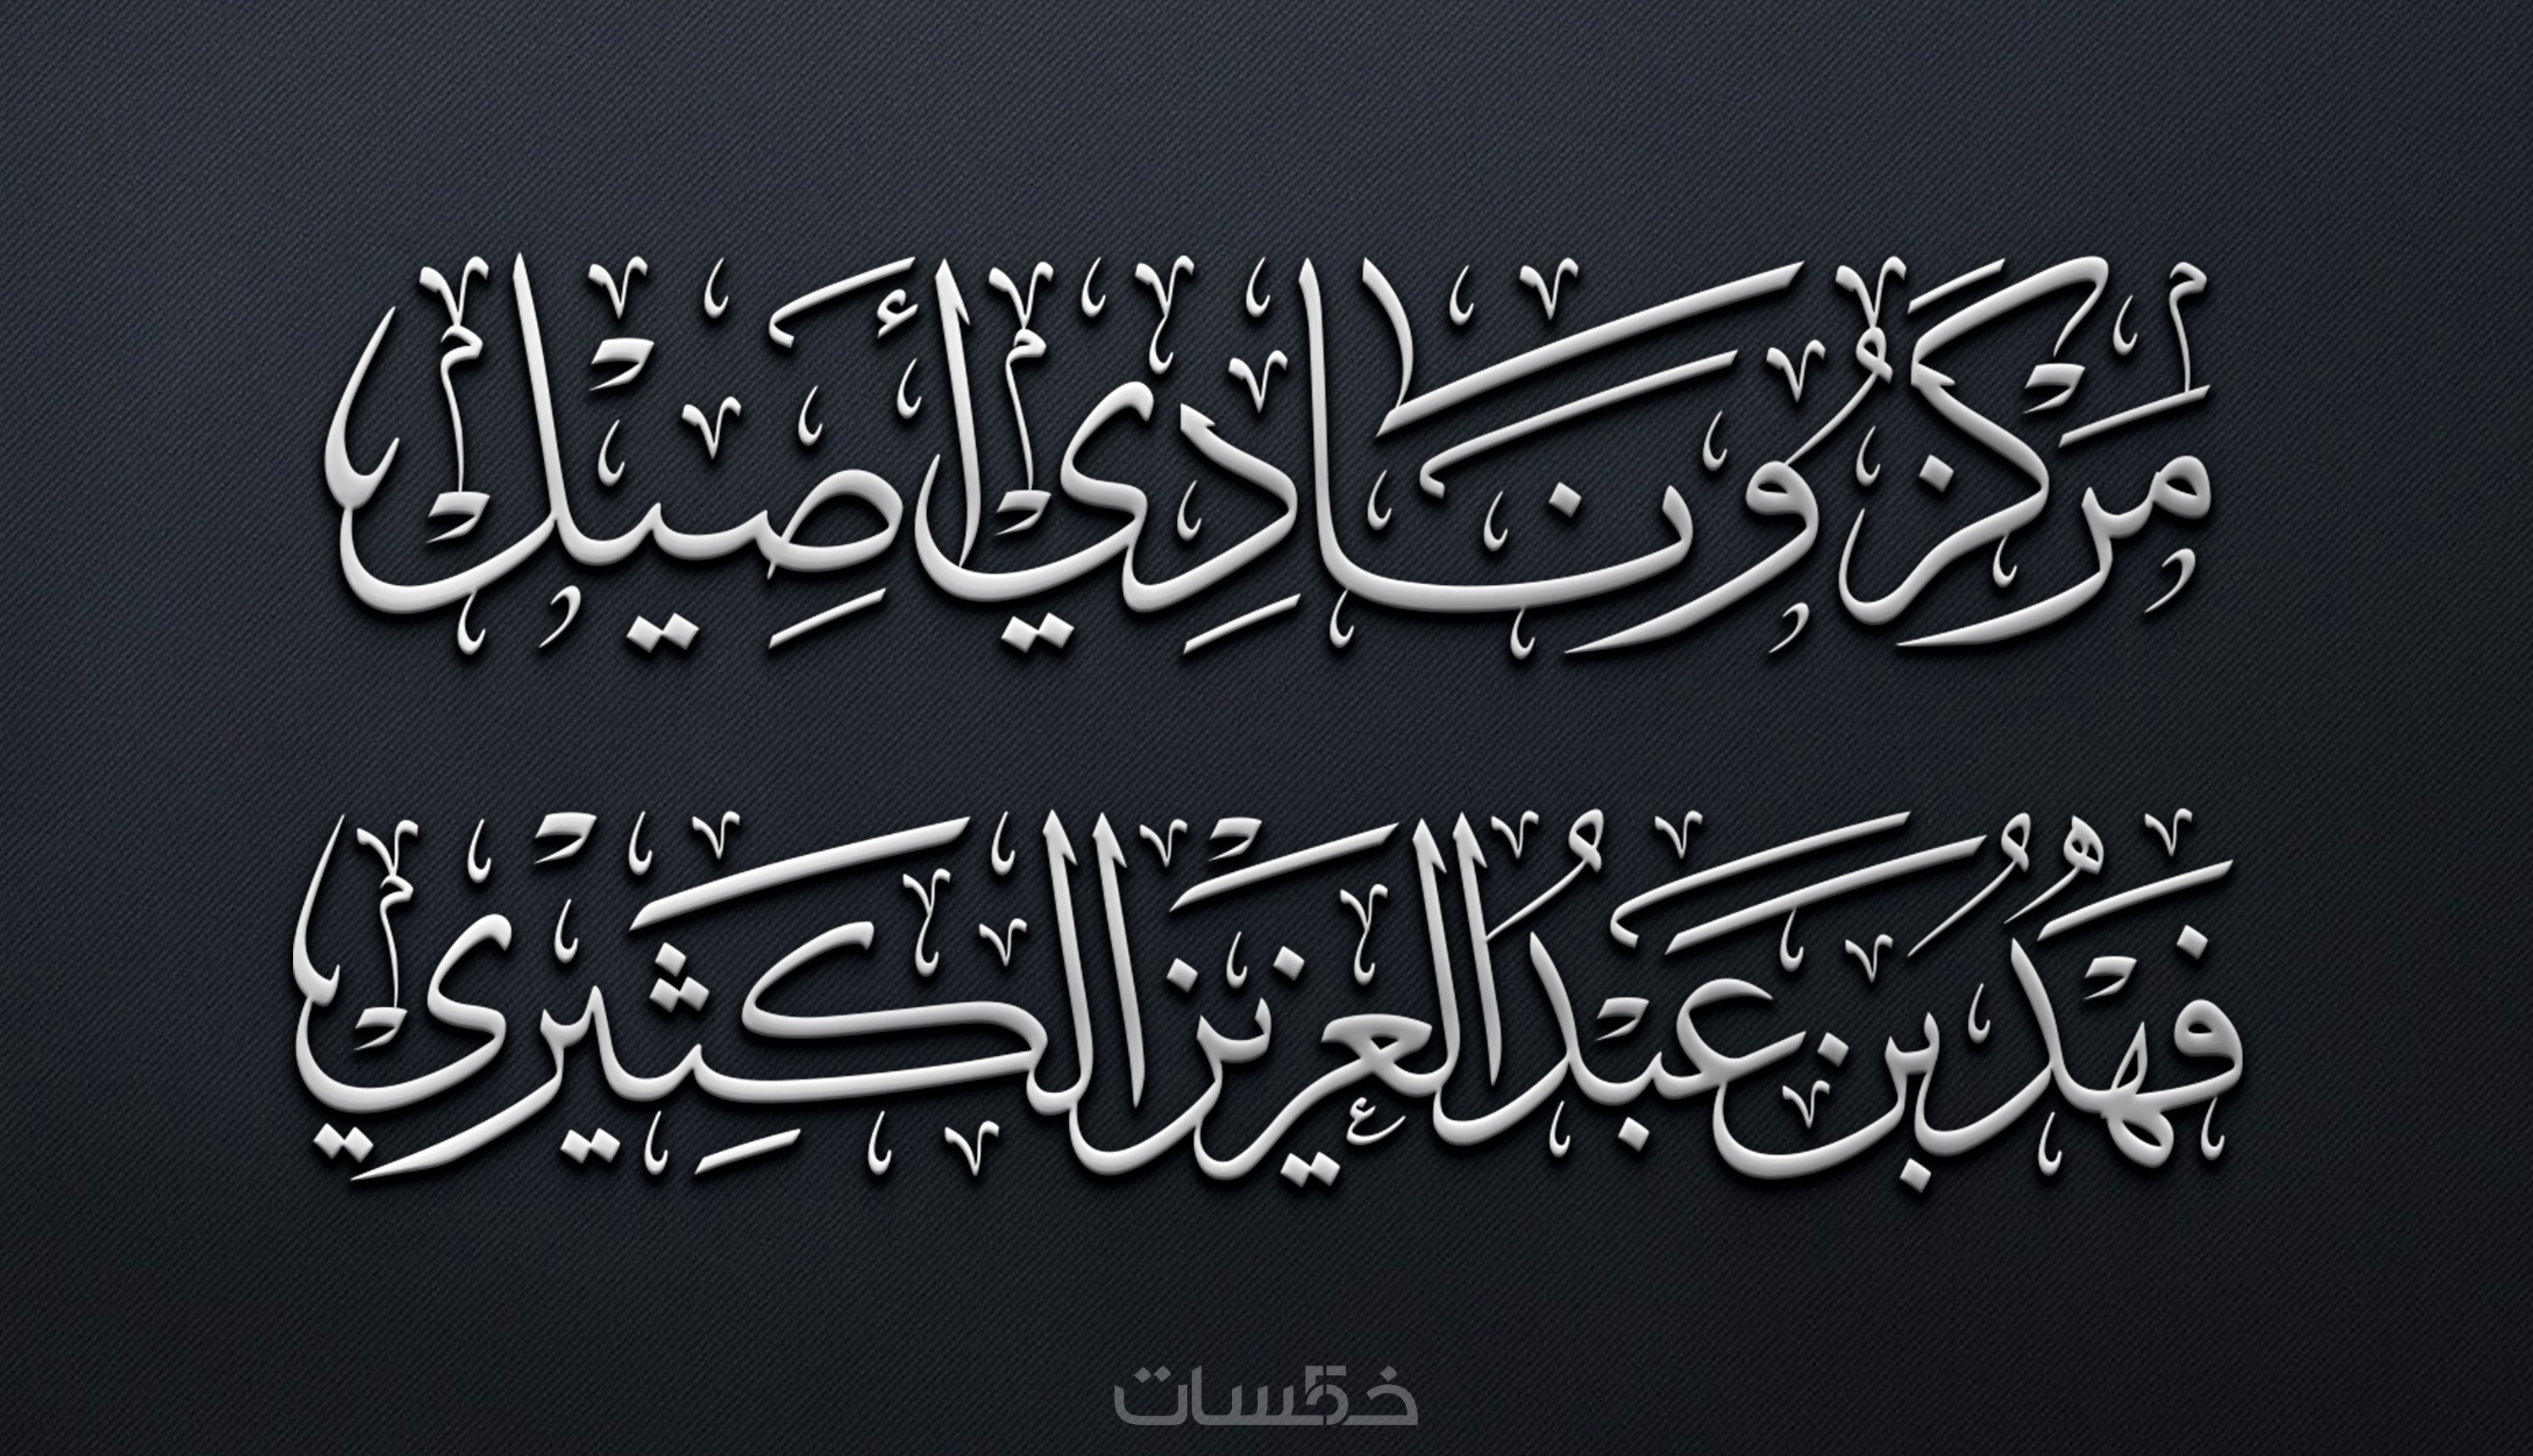 مَرْكَز وُنَادِي أَصِيْل
فَهْدُ بن عَبْدُ العزيْز الكِثيْري
خمسات